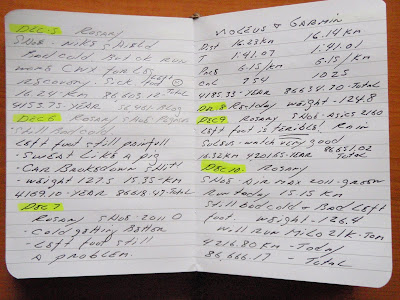 Dec 5 Rosary
SNOB - Nike Shield
Bad cold But ok Run
wore CWX for LS
recovery. Sick + Tad
16.24 Km 86603.12-Total
4153.73-YEAR
Dec 6 Rosary SNOB
Still Bad cold
Left foot still painfull
- Sweat Like a pig
- CAR Backsdown Shit!
- weight 127.5 15.35-Km
4169.10-YEAR 86618.47-Total
Dec 7
Rosary SNOB-2011
- Cold getting Better
- Left foot still
a problem.
Garmin
Dst 16.23km 16.14km
T 1:41.01 1:41.07
Pace 6.15/km 6:15/km
Cal 754 1025
4185.33-YEAR 86634.70-Total
Dec 8 Restday weight-124.8
Dec 9 Rosary SNOB-Asics 2160
Left foot is terible! Rain
watch very good
4201.65 YEAR 86651.02
Total
Dec 10- Rosary
SNOB Air max 2011-green
Run today 15.15 km
Still Bad cold & Bad Left
foot. weight-126.4
Will run Milo 21K-Tom
4216.80 Km - Today
86,666.17 - Total